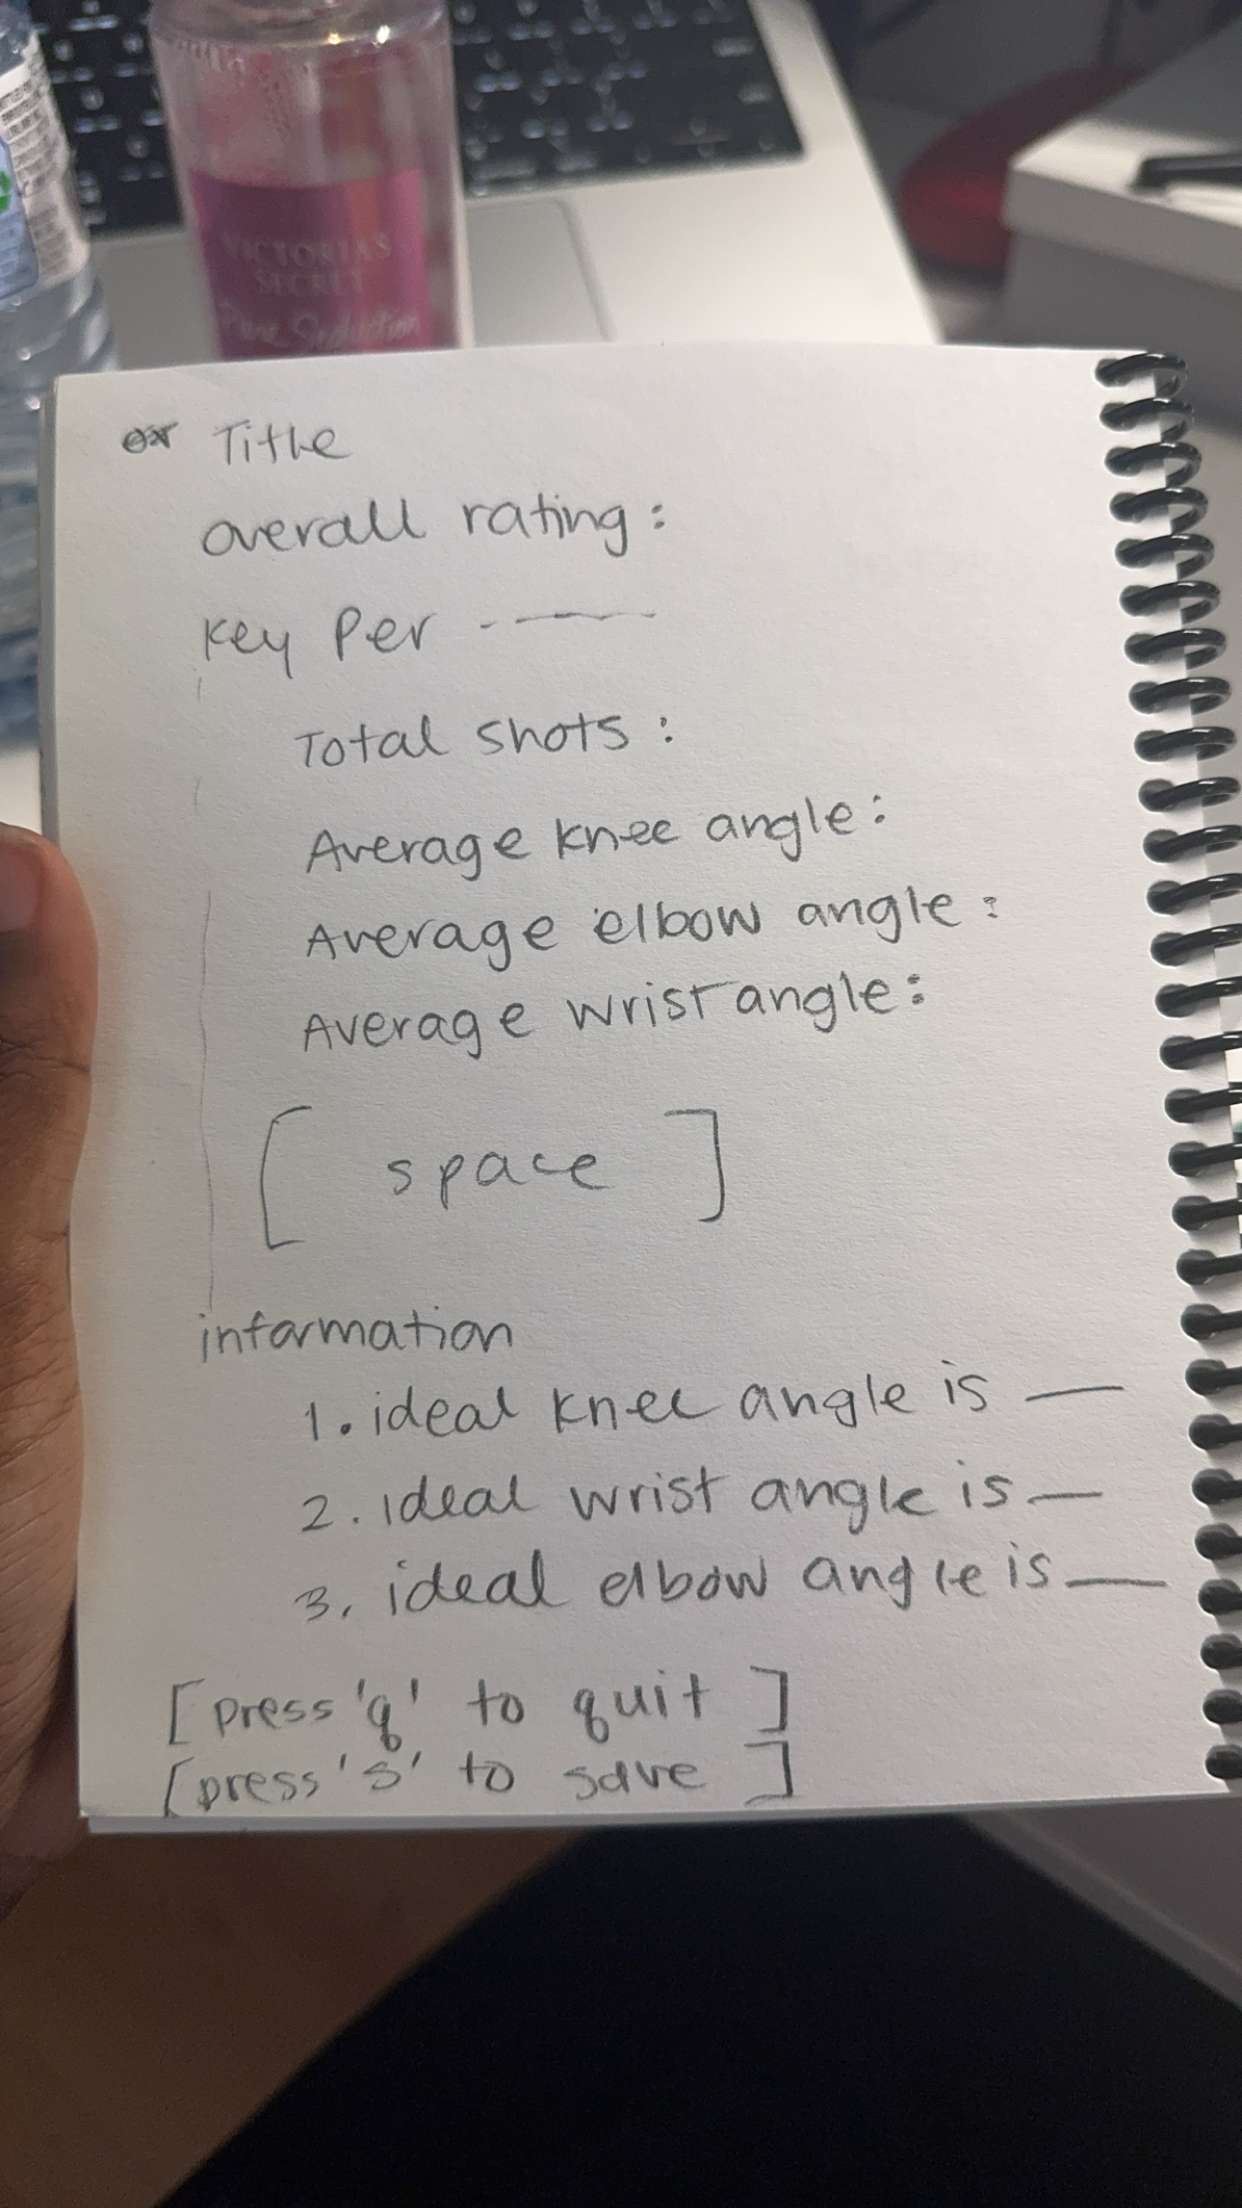 VICTORIA'S
SECRET
Pure Seduction
ex Title
overall rating:
Key Per
Total shots:
Average knee angle:
Average elbow angle:
Average wrist angle:
[ space ]
information
1. ideal knee angle is —
2. ideal wrist angle is —
3. ideal elbow angle is —
[press 'q' to quit ]
[press 's' to save ]